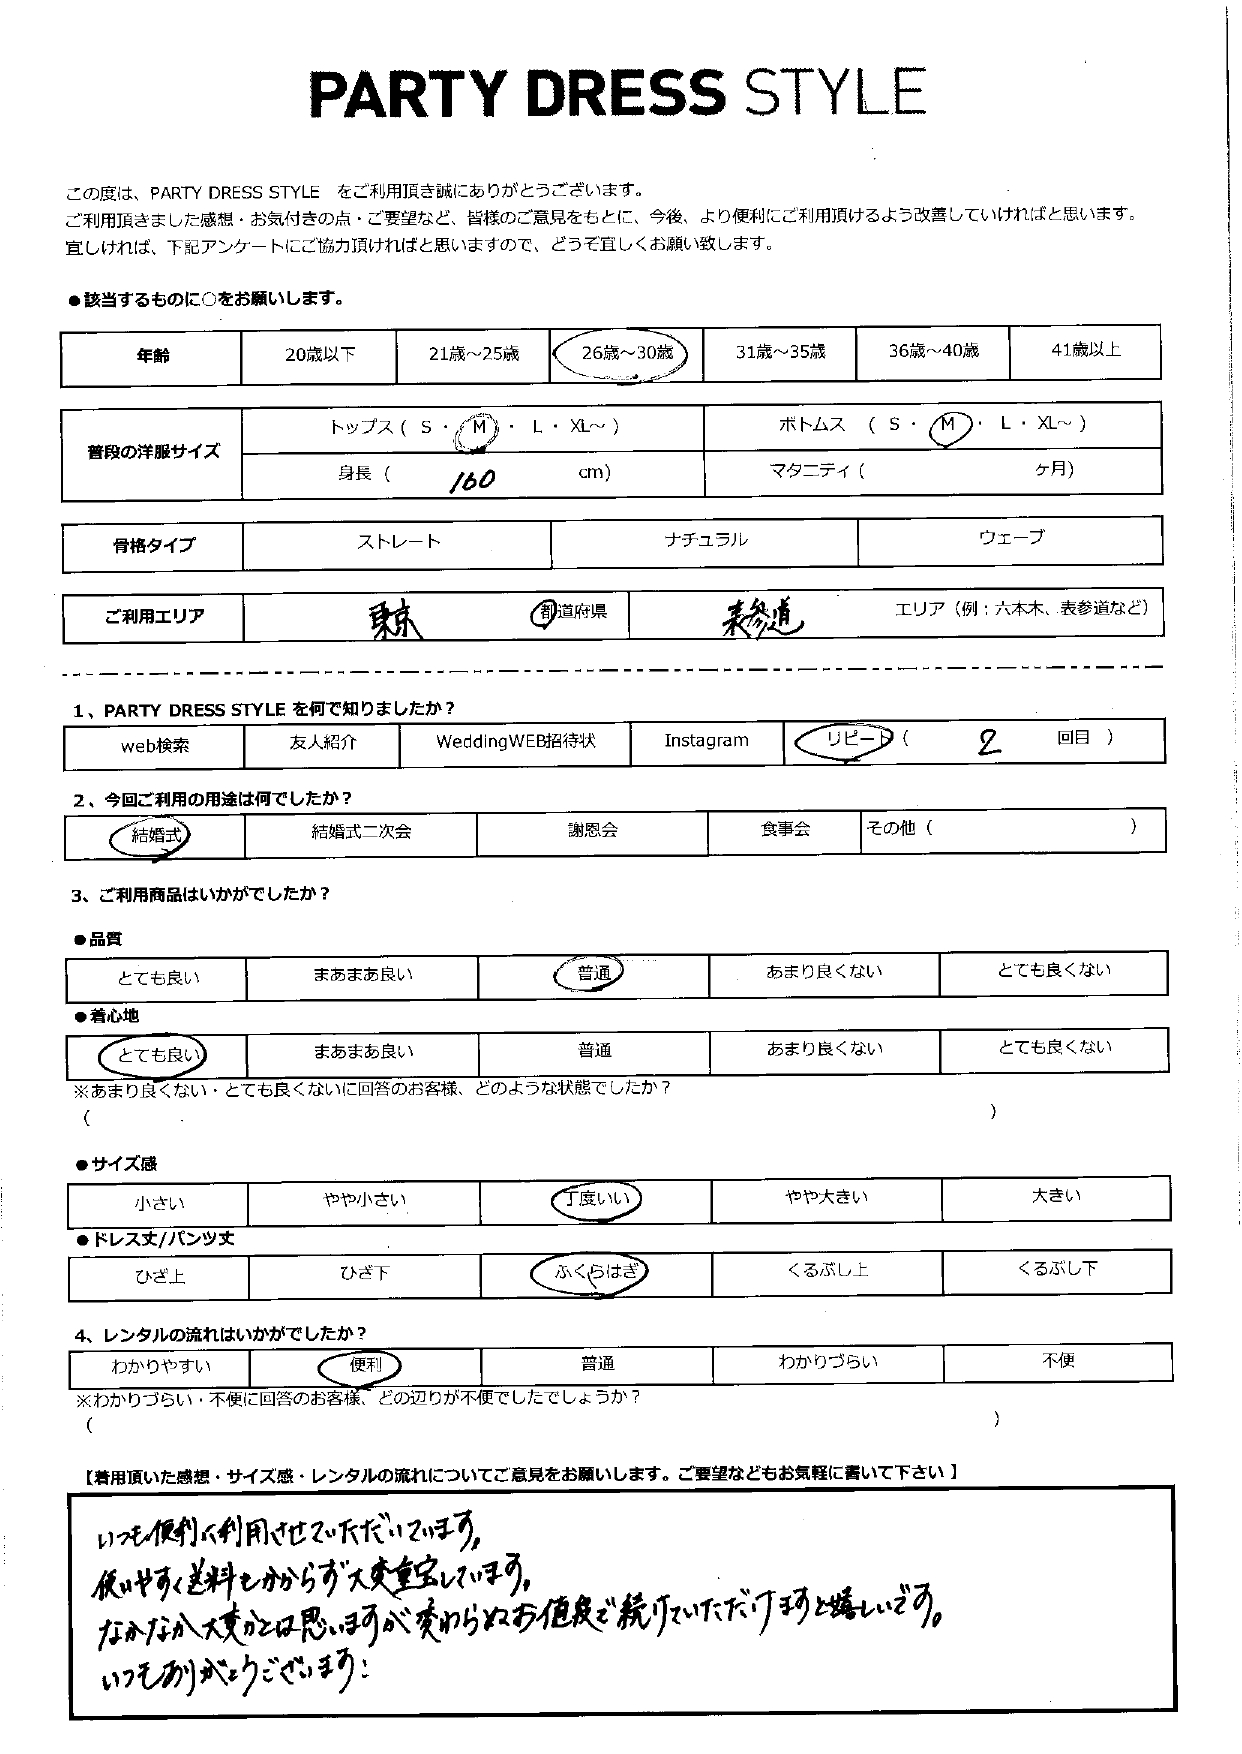 PARTY DRESS STYLE
この度は、PARTY DRESS STYLE をご利用頂き誠にありがとうございます。
ご利用頂きました感想・お気付きの点・ご要望など、皆様のご意見をもとに、今後、より便利にご利用頂けるよう改善していければと思います。
宜しければ、下記アンケートにご協力頂ければと思いますので、どうぞ宜しくお願い致します。
●該当するものに○をお願いします。
年齢 20歳以下 21歳～25歳 26歳～30歳 31歳～35歳 36歳～40歳 41歳以上
普段の洋服サイズ トップス ( S ・ M ・ L ・ XL～ ) ボトムス ( S ・ M ・ L ・ XL～ )
身長 ( 160 cm) マタニティ ( ヶ月)
骨格タイプ ストレート ナチュラル ウェーブ
ご利用エリア 東京 都道府県 表参道 エリア（例：六本木、表参道など）
1、PARTY DRESS STYLE を何で知りましたか？
web検索 友人紹介 WeddingWEB招待状 Instagram リピート ( 2 回目 )
2、今回ご利用の用途は何でしたか？
結婚式 結婚式二次会 謝恩会 食事会 その他 ( )
3、ご利用商品はいかがでしたか？
●品質
とても良い まあまあ良い 普通 あまり良くない とても良くない
●着心地
とても良い まあまあ良い 普通 あまり良くない とても良くない
※あまり良くない・とても良くないに回答のお客様、どのような状態でしたか？
( )
●サイズ感
小さい やや小さい 丁度いい やや大きい 大きい
●ドレス丈/パンツ丈
ひざ上 ひざ下 ふくらはぎ くるぶし上 くるぶし下
4、レンタルの流れはいかがでしたか？
わかりやすい 便利 普通 わかりづらい 不便
※わかりづらい・不便に回答のお客様、どの辺りが不便でしたでしょうか？
( )
【着用頂いた感想・サイズ感・レンタルの流れについてご意見をお願いします。ご要望などもお気軽に書いて下さい 】
いつも便利に利用させていただいています。
使いやすく送料もかからず大変重宝しています。
なかなか大変かとは思いますが変わらぬお値段で続けていただけますと嬉しいです。
いつもありがとうございます！